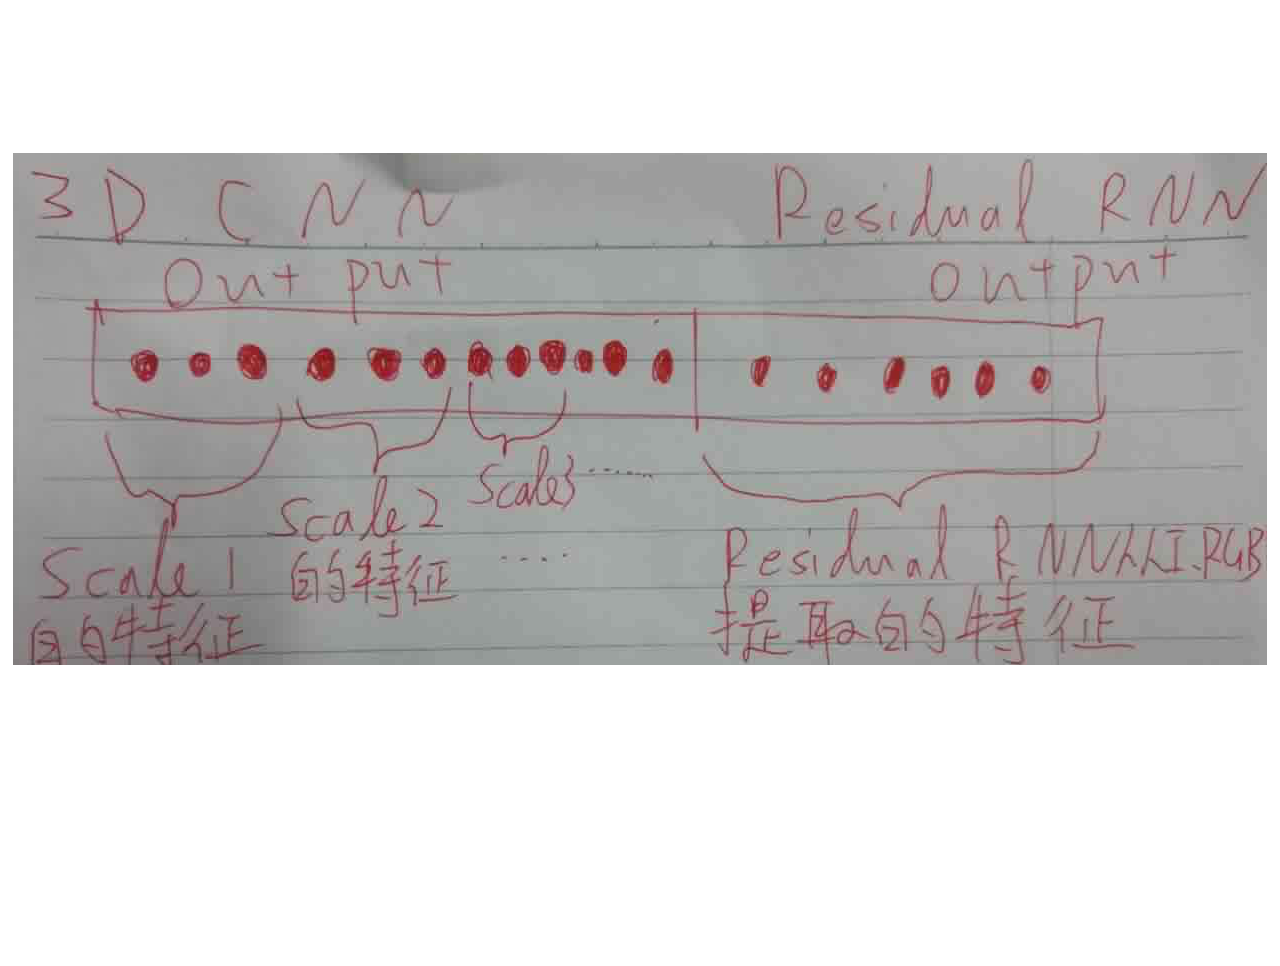 3D CNN Residual RNN
Output Output
Scale3 ......
Scale2
的特征 ....
Scale1
的特征
Residual RNN从I.RGB
提取的特征